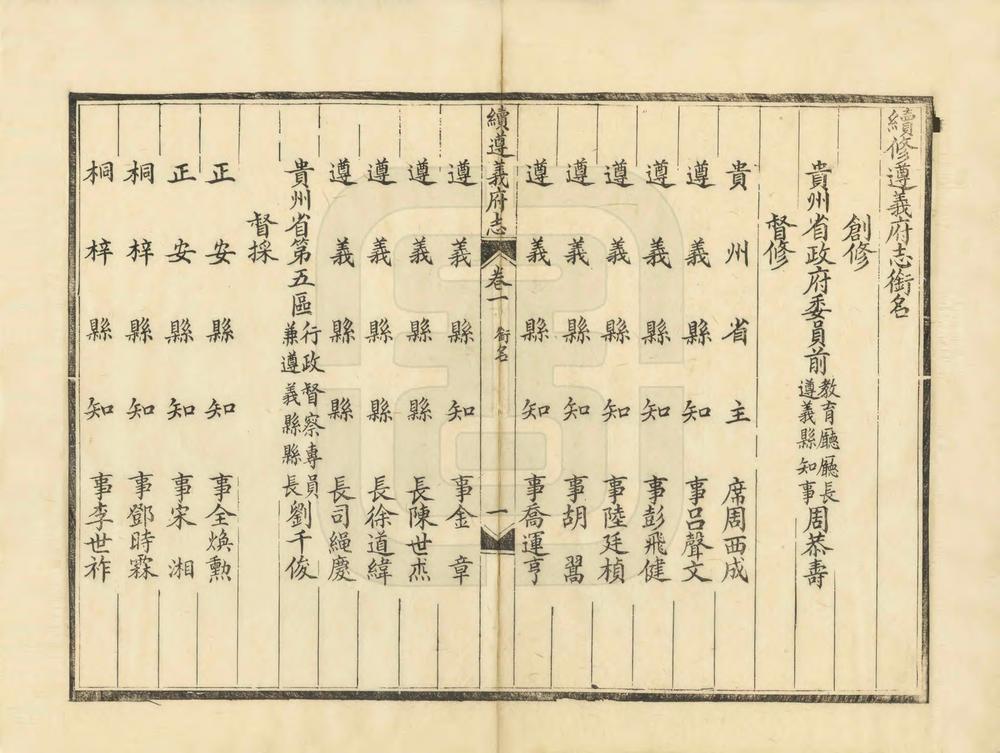 續修遵義府志銜名
創修
貴州省政府委員前教育廳廳長遵義縣知事周恭壽
督修
貴州省主席周西成
遵義縣知事呂聲文
遵義縣知事彭飛健
遵義縣知事陸廷楨
遵義縣知事胡翯
遵義縣知事喬運亨
續遵義府志 卷一 銜名 一
遵義縣知事金章
遵義縣縣長陳世烋
遵義縣縣長徐道緯
遵義縣縣長司繩慶
貴州省第五區行政督察專員兼遵義縣縣長劉千俊
督採
正安縣知事全煥勳
正安縣知事宋湘
桐梓縣知事鄧時霖
桐梓縣知事李世祚